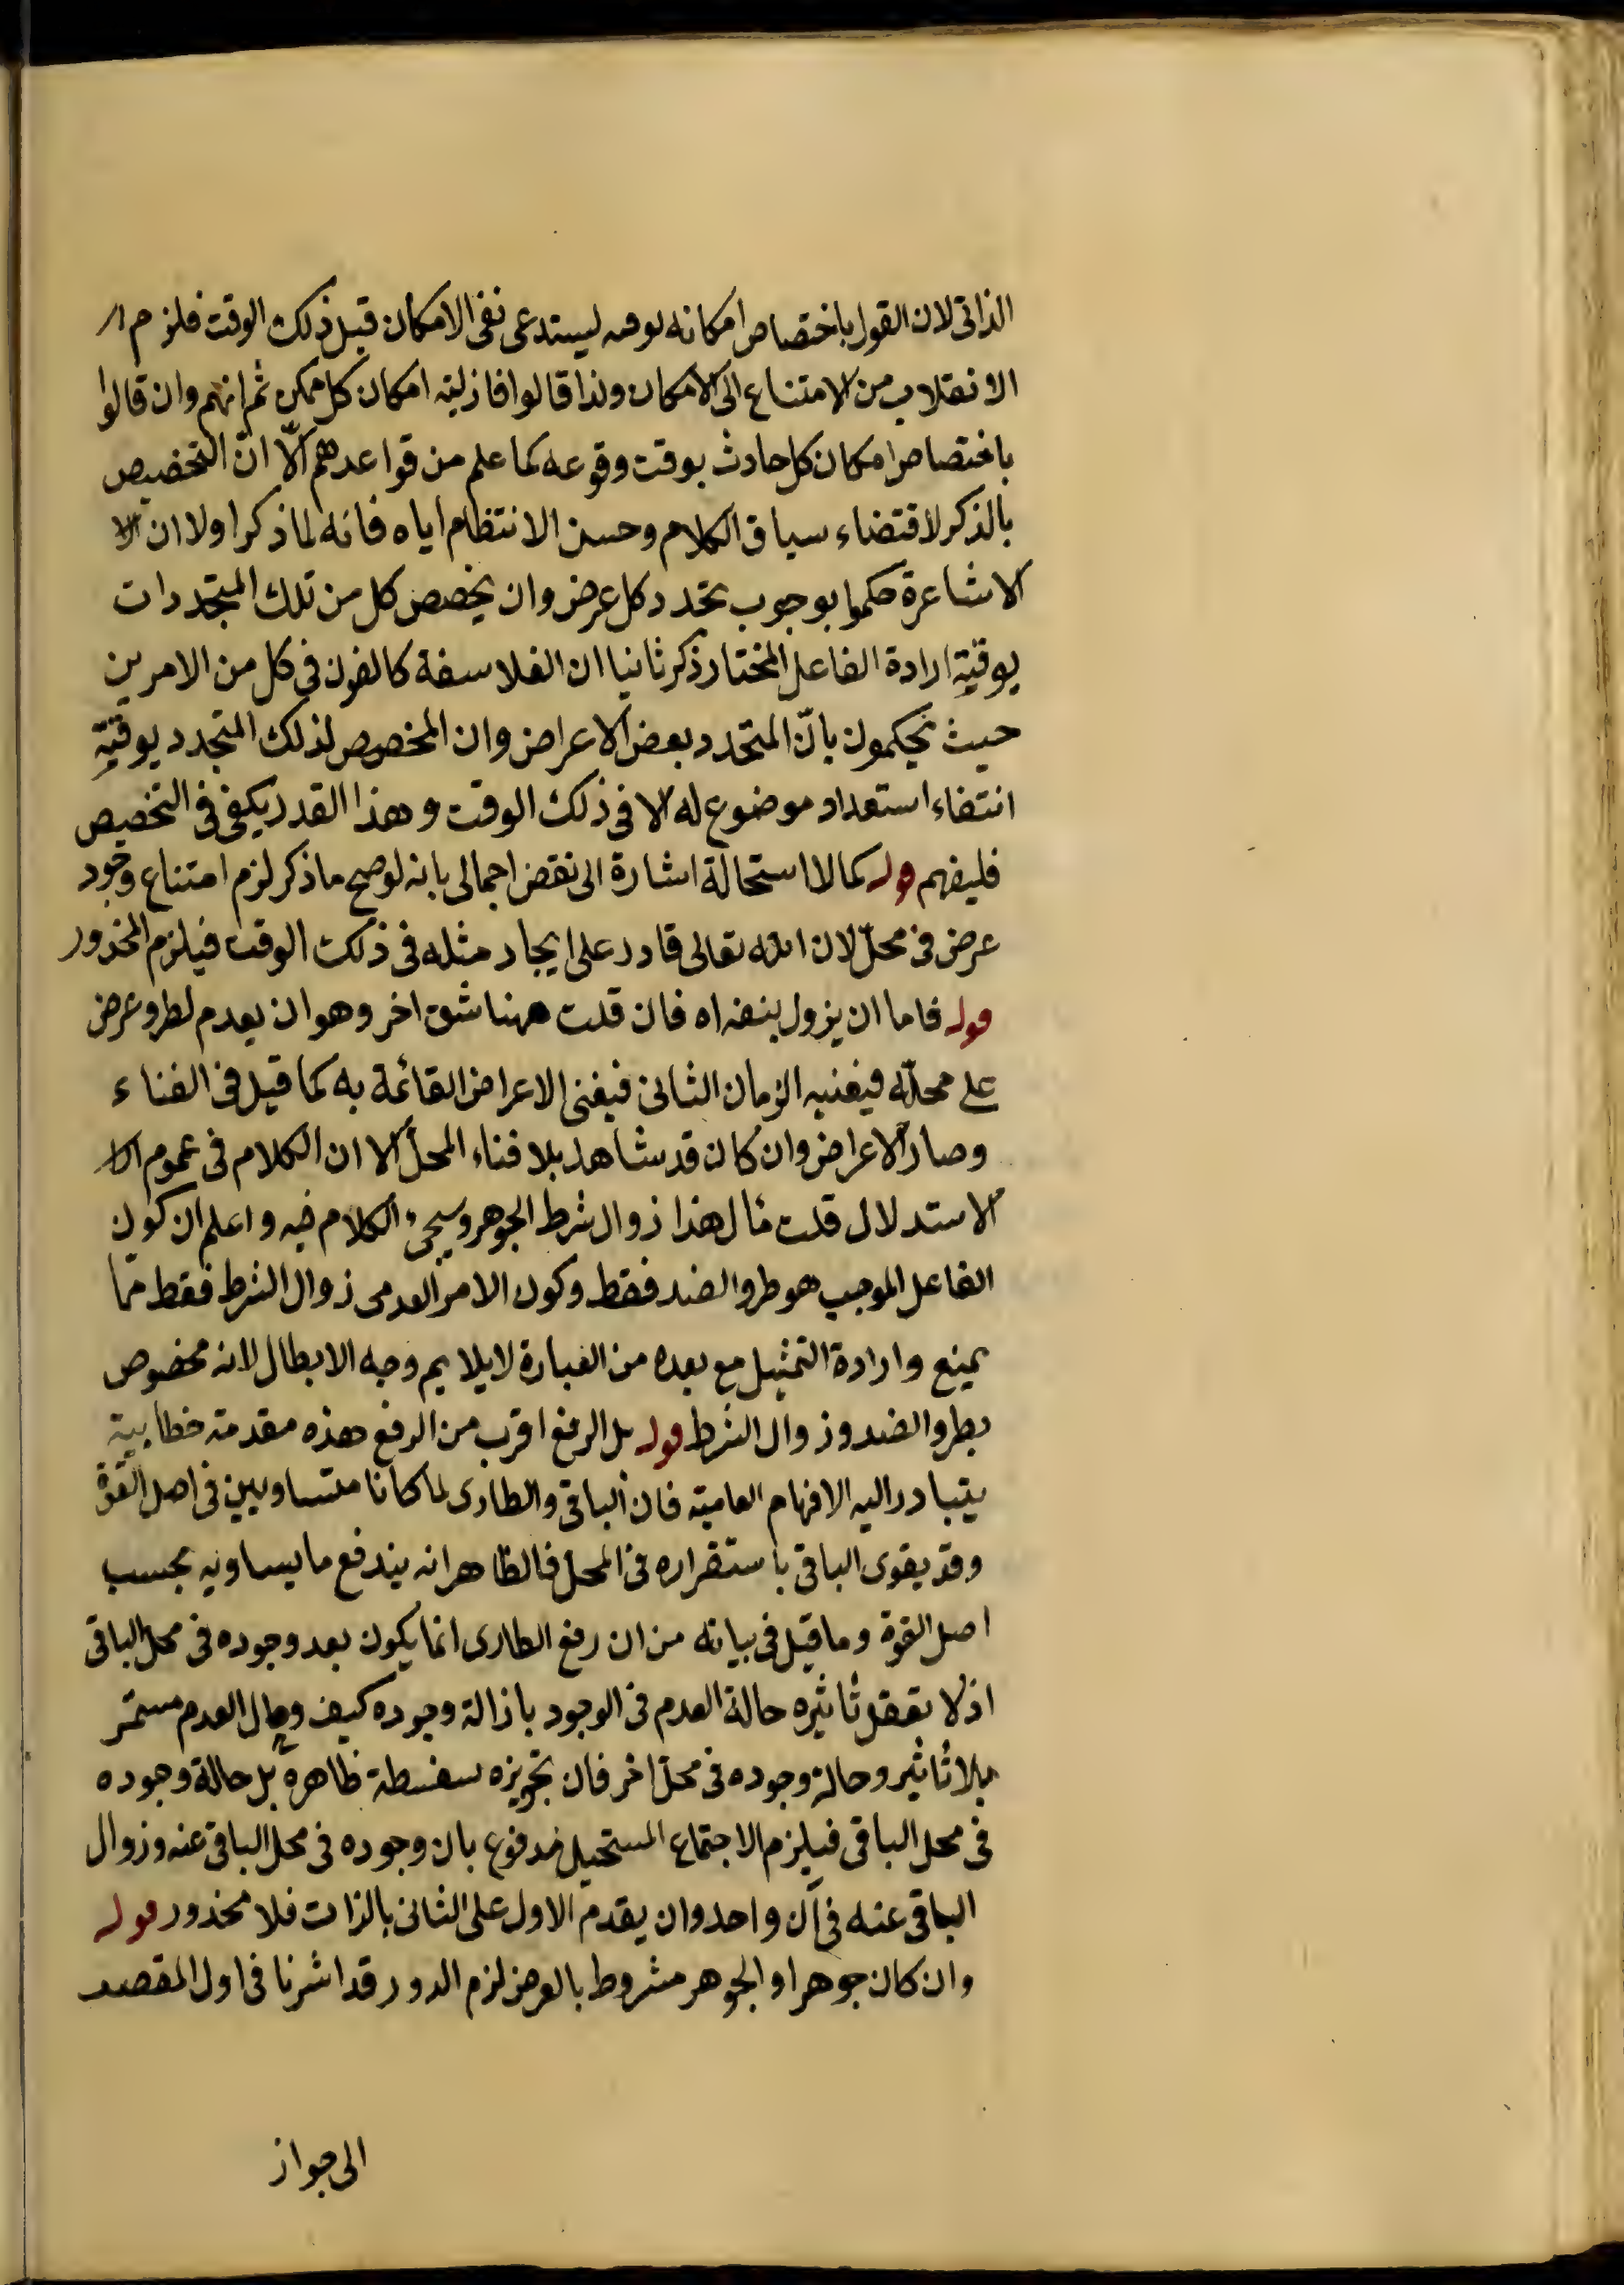 الذاتى لان القول باختصاص امكانه بوقت ليستدعى نفى الامكان قبل ذلك الوقت فلزم ا
الانقلاب من الامتناع الى الامكان ولذا قالوا فازلية امكان كل ممكن ثم انهم وان قالوا
باختصاص امكان كل حادث بوقت وقوعه كما علم من قواعدهم الّا انّ التخصيص
بالذكر لاقتضاء سياق الكلام وحسن الانتظام اياه فانه لما ذكر اولا ان الا
الاشاعرة حكموا بوجوب تجدد كل عرض وان يخصص كل من تلك المتجددات
بوقتية ارادة الفاعل المختار ذكر ثانيا ان الفلاسفة كالفون فى كل من الامرين
حيث يحكمون بانّ المتجدد بعض الاعراض وان المخصص لذلك المتجدد بوقتيّة
انتفاء استعداد موضوع له الا فى ذلك الوقت وهذا القدر يكفى فى التخصيص
فليفهم قوله كما لا استحالة اشارة الى نقض اجمالى بانه لو صح ما ذكر لزم امتناع وجود
عرض فى محلّ لان الله تعالى قادر على ايجاد مثله فى ذلك الوقت فيلزم المحذور
قوله فاما ان يزول بنفسه اه فان قلت ههنا شق اخر وهو ان يعدم لطرو عرض
على محلّه فيفنيه الزمان الثانى فيفنى الاعراض القائمة به كما قيل فى الفناء
وصار الاعراض وان كان قد يشاهد بلا فناء المحل الا ان الكلام فى عموم الا
الاستدلال قلت مأل هذا زوال شرط الجوهر وسيجىء الكلام فيه واعلم ان كون
الفاعل الموجب هو طرو الضد فقط وكون الامر العدمى زوال الشرط فقط ممّا
يمنع وارادة التمثيل مع بعده من العبارة لا يلايم وجه الابطال لانه مخصوص
بطرو الضد وزوال الشرط قوله بل الرفع اقرب من الدفع هذه مقدمة خطابية
يتبادر اليه الافهام العامية فان الباقى والطارى لما كانا متساويين فى اصل القوة
وقد يقوى الباقى باستقراره فى المحل فالظاهر انه يندفع ما يساويه بحسب
اصل القوة وما قيل فى بيانه من ان رفع الطارى انما يكون بعد وجوده فى محل الباقى
اذ لا يعقل تأثيره حالة العدم فى الوجود بازالة وجوده كيف وحال العدم مستمر
بلا تأثير وحالة وجوده فى محل اخر فان تجويزه سفسطة ظاهرة بل حالة وجوده
فى محل الباقى فيلزم الاجتماع المستحيل فمدفوع بان وجوده فى محل الباقى عنه وزوال
الباقى عنه فى آن واحد وان يقدم الاول على الثانى بالذات فلا محذور قوله
وان كان جوهرا والجوهر مشروط بالعرض لزم الدور قد اشرنا فى اول المقصد
الى جواز